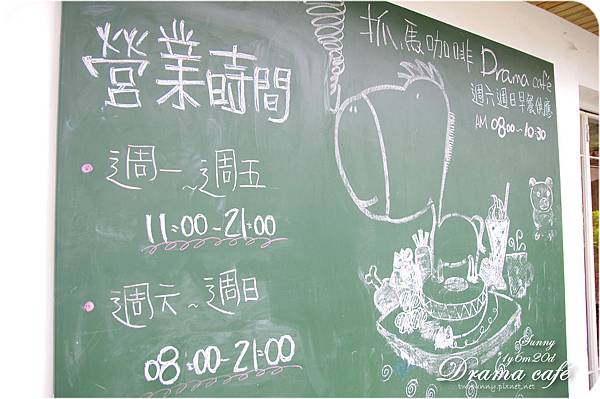 營業時間
週一~週五
11:00~21:00
週六~週日
08:00~21:00
抓馬咖啡 Drama café
週六週日早餐供應
AM 08:00~10:30
Sunny
1y6m20d
Drama café
tw-sunny.pixnet.net